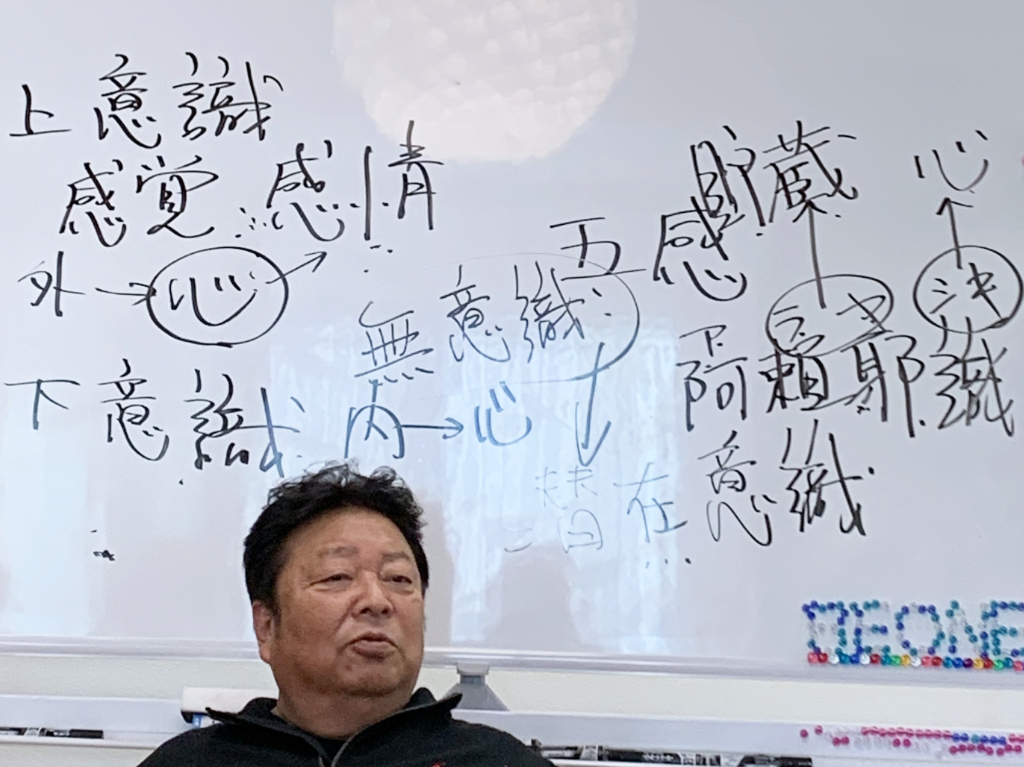 上意識
感覚 感情
外→心
下意識 内→心
無意識
五感
貯蔵 心
決
阿頼耶識
潜在意識
NEONE